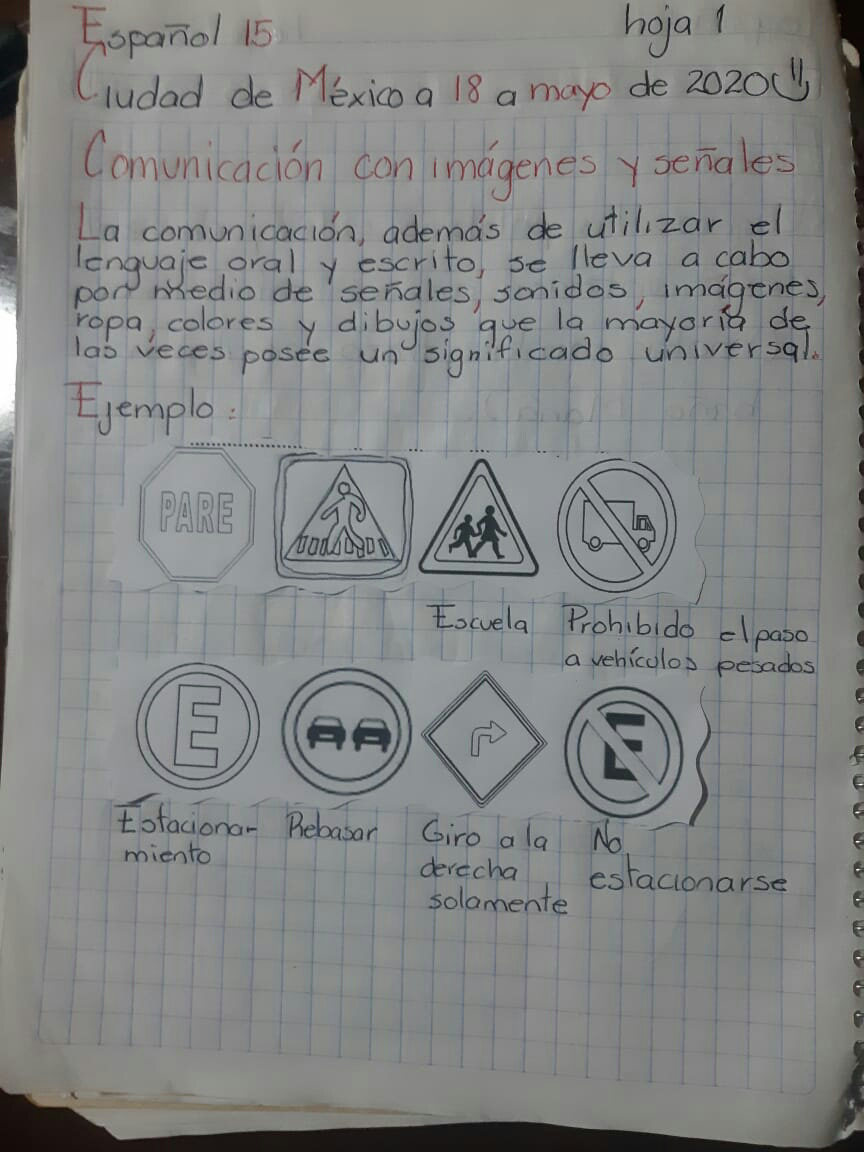 Español 15
hoja 1
Ciudad de México a 18 a mayo de 2020
Comunicación con imágenes y señales
La comunicación, además de utilizar el
lenguaje oral y escrito, se lleva a cabo
por medio de señales, sonidos, imágenes,
ropa, colores y dibujos que la mayoría de
las veces posee un significado universal.
Ejemplo:
PARE
Escuela
Prohibido el paso
a vehículos pesados
E
E
Estaciona-
miento
Rebasar
Giro a la
derecha
solamente
No
estacionarse